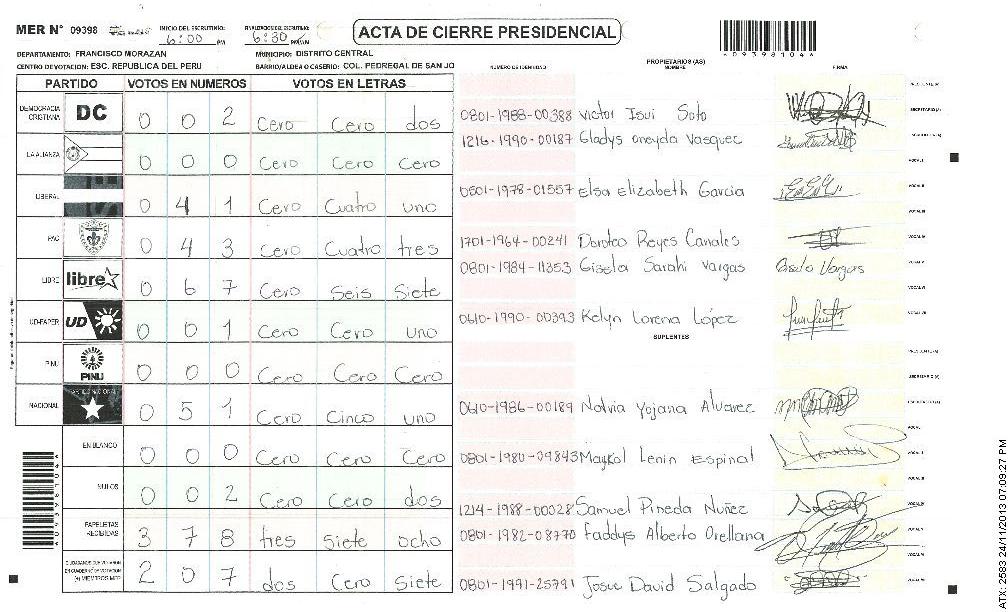 MER N° 09398 INICIO DEL ESCRUTINIO: 6:00 PM FINALIZACION DEL ESCRUTINIO: 6:30 PM/AM ACTA DE CIERRE PRESIDENCIAL
*09398104*
DEPARTAMENTO: FRANCISCO MORAZAN MUNICIPIO: DISTRITO CENTRAL
CENTRO DE VOTACION: ESC. REPUBLICA DEL PERU BARRIO/ALDEA O CASERIO: COL. PEDREGAL DE SAN JO
NUMERO DE IDENTIDAD PROPIETARIOS (AS) NOMBRE FIRMA
PARTIDO VOTOS EN NUMEROS VOTOS EN LETRAS
DEMOCRACIA CRISTIANA DC 0 0 2 Cero Cero dos
LA ALIANZA 0 0 0 Cero Cero Cero
LIBERAL 0 4 1 Cero Cuatro uno
PAC 0 4 3 Cero Cuatro tres
LIBRE libre 0 6 7 Cero Seis Siete
UD-FAPER UD 0 0 1 Cero Cero uno
PINU PINU 0 0 0 Cero Cero Cero
NACIONAL 0 5 1 Cero Cinco uno
EN BLANCO 0 0 0 Cero Cero Cero
NULOS 0 0 2 Cero Cero dos
PAPELETAS RECIBIDAS 3 7 8 tres Siete ocho
CIUDADANOS QUE VOTARON EN CUADERNO DE VOTACION (+) MIEMBROS MER 2 0 7 dos Cero Siete
0801-1988-00388 Victor Isui Soto
1216-1990-00187 Gladys oneyda Vasquez
0801-1978-01557 Elsa Elizabeth Garcia
1701-1964-00241 Doroteo Reyes Canales
0801-1984-11353 Gisela Sarahi Vargas
0610-1990-00393 Kelyn Lorena López
SUPLENTES
0610-1986-00189 Nolvia Yojana Alvarez
0801-1980-09843 Maykol Lenin Espinal
1214-1988-00028 Samuel Pineda Nuñez
0801-1982-08770 Faddys Alberto Orellana
0801-1991-25791 Josue David Salgado
ATX: 2583 24/11/2013 07:09:27 PM